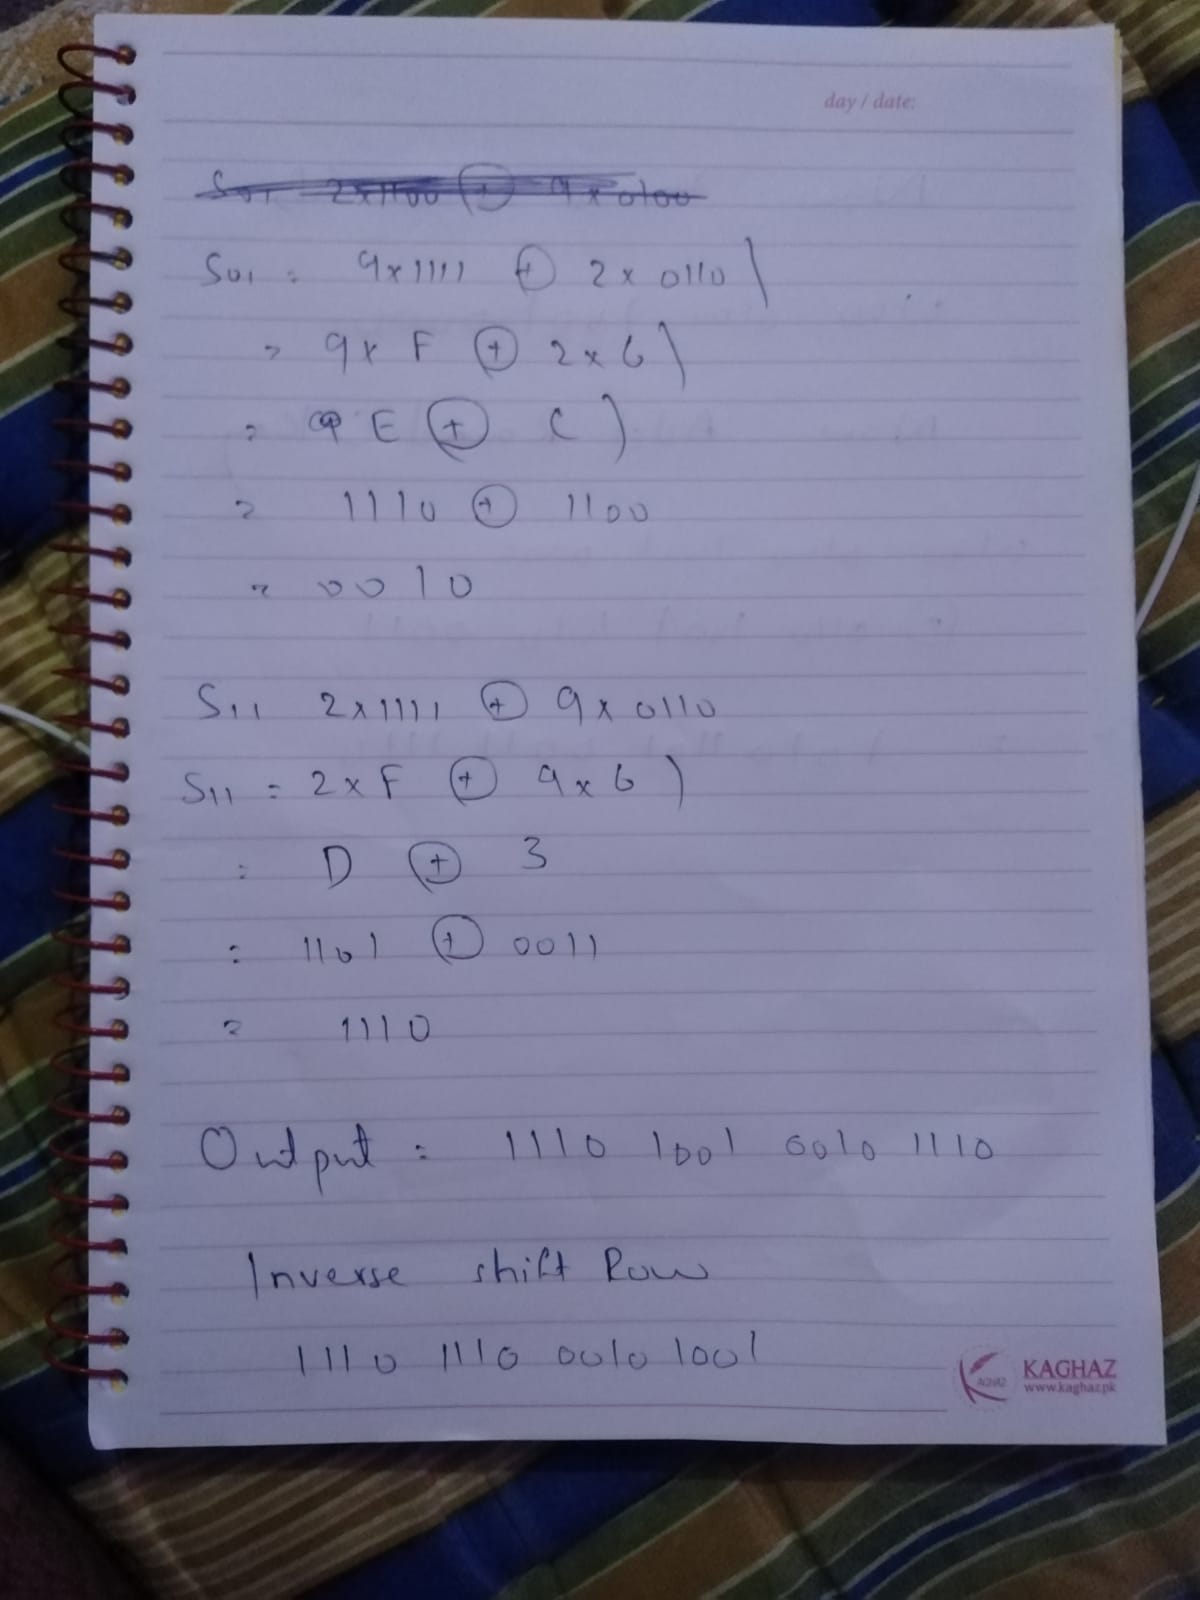 day / date:
S01 2x1100 ⊕ 9x0100
S01 = 9x1111 ⊕ 2x0110)
= 9x F ⊕ 2x6)
= E ⊕ C)
= 1110 ⊕ 1100
= 0010
S11 2x1111 ⊕ 9x0110
S11 = 2xF ⊕ 9x6)
= D ⊕ 3
= 1101 ⊕ 0011
= 1110
Output = 1110 1001 0010 1110
Inverse shift Row
1110 1110 0010 1001
KAGHAZ
www.kaghaz.pk